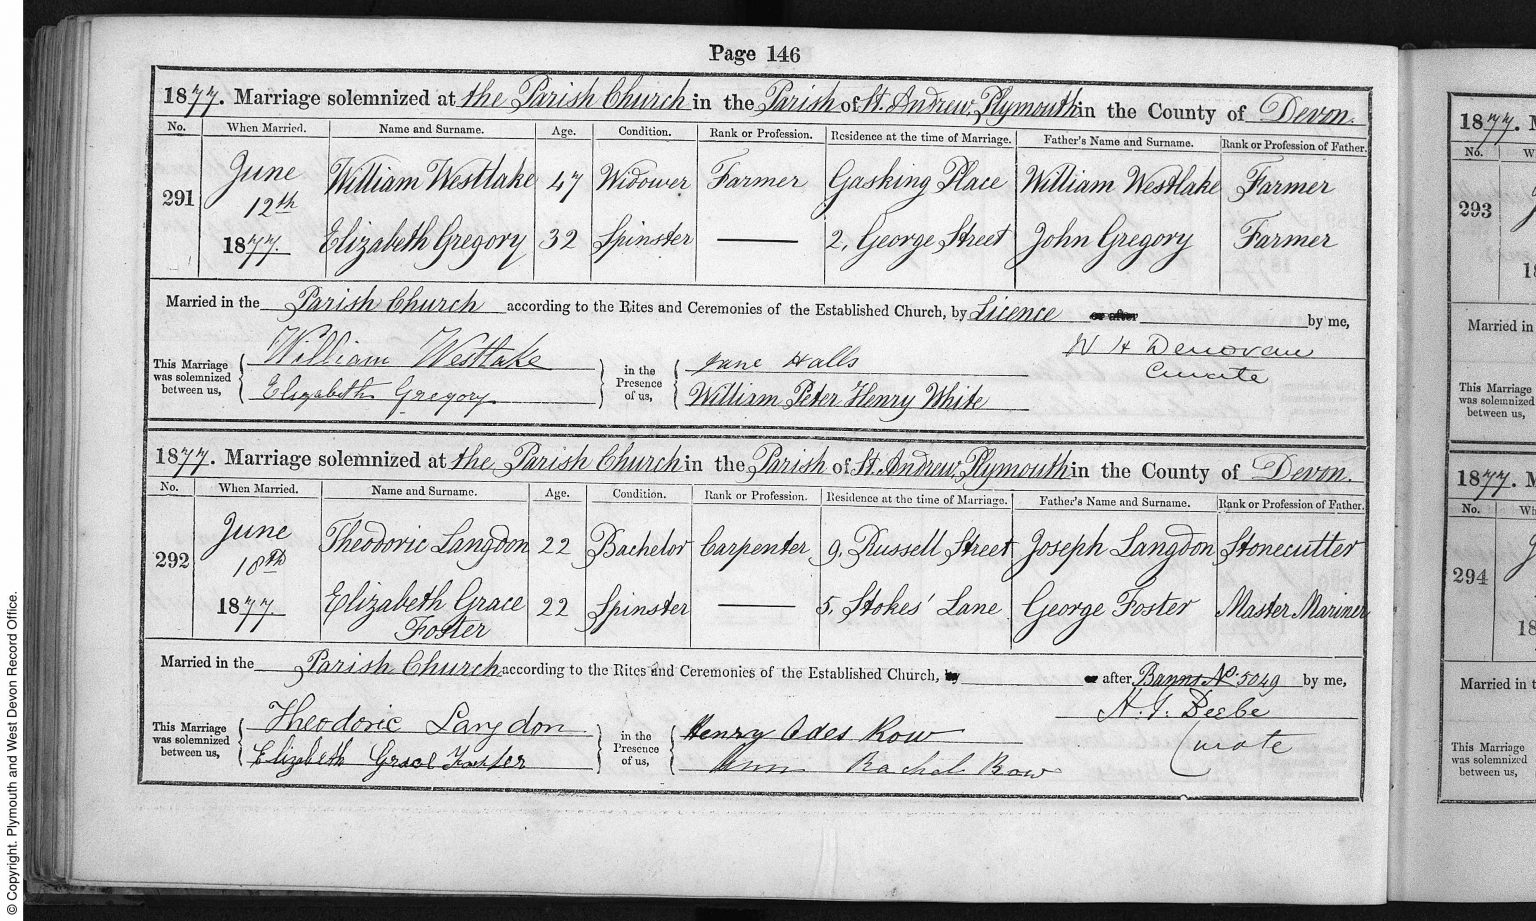 Page 146
1877. Marriage solemnized at the Parish Church in the Parish of St. Andrew, Plymouth in the County of Devon.
No. When Married. Name and Surname. Age. Condition. Rank or Profession. Residence at the time of Marriage. Father's Name and Surname. Rank or Profession of Father.
291 June 12th 1877. William Westlake 47 Widower Farmer Gasking Place William Westlake Farmer
Elizabeth Gregory 32 Spinster 2, George Street John Gregory Farmer
Married in the Parish Church according to the Rites and Ceremonies of the Established Church, by Licence or after by me,
This Marriage was solemnized between us, William Westlake in the Presence of us, Jane Halls W H Donovan
Elizabeth Gregory William Peter Henry White Curate
1877. Marriage solemnized at the Parish Church in the Parish of St. Andrew, Plymouth in the County of Devon.
No. When Married. Name and Surname. Age. Condition. Rank or Profession. Residence at the time of Marriage. Father's Name and Surname. Rank or Profession of Father.
292 June 18th 1877 Theodoric Langdon 22 Bachelor Carpenter 9, Russell Street Joseph Langdon Stonecutter
Elizabeth Grace Foster 22 Spinster 5, Stokes' Lane George Foster Master Mariner
Married in the Parish Church according to the Rites and Ceremonies of the Established Church, by or after Banns No. 5049 by me,
This Marriage was solemnized between us, Theodoric Langdon in the Presence of us, Henry Odes Row H. J. Beebe
Elizabeth Grace Foster Ann Rachel Row Curate
1877. M
No. W
293
18
Married in
This Marriage
was solemnized
between us,
1877. M
No. Wh
294
18
Married in t
This Marriage
was solemnized
between us,
© Copyright. Plymouth and West Devon Record Office.